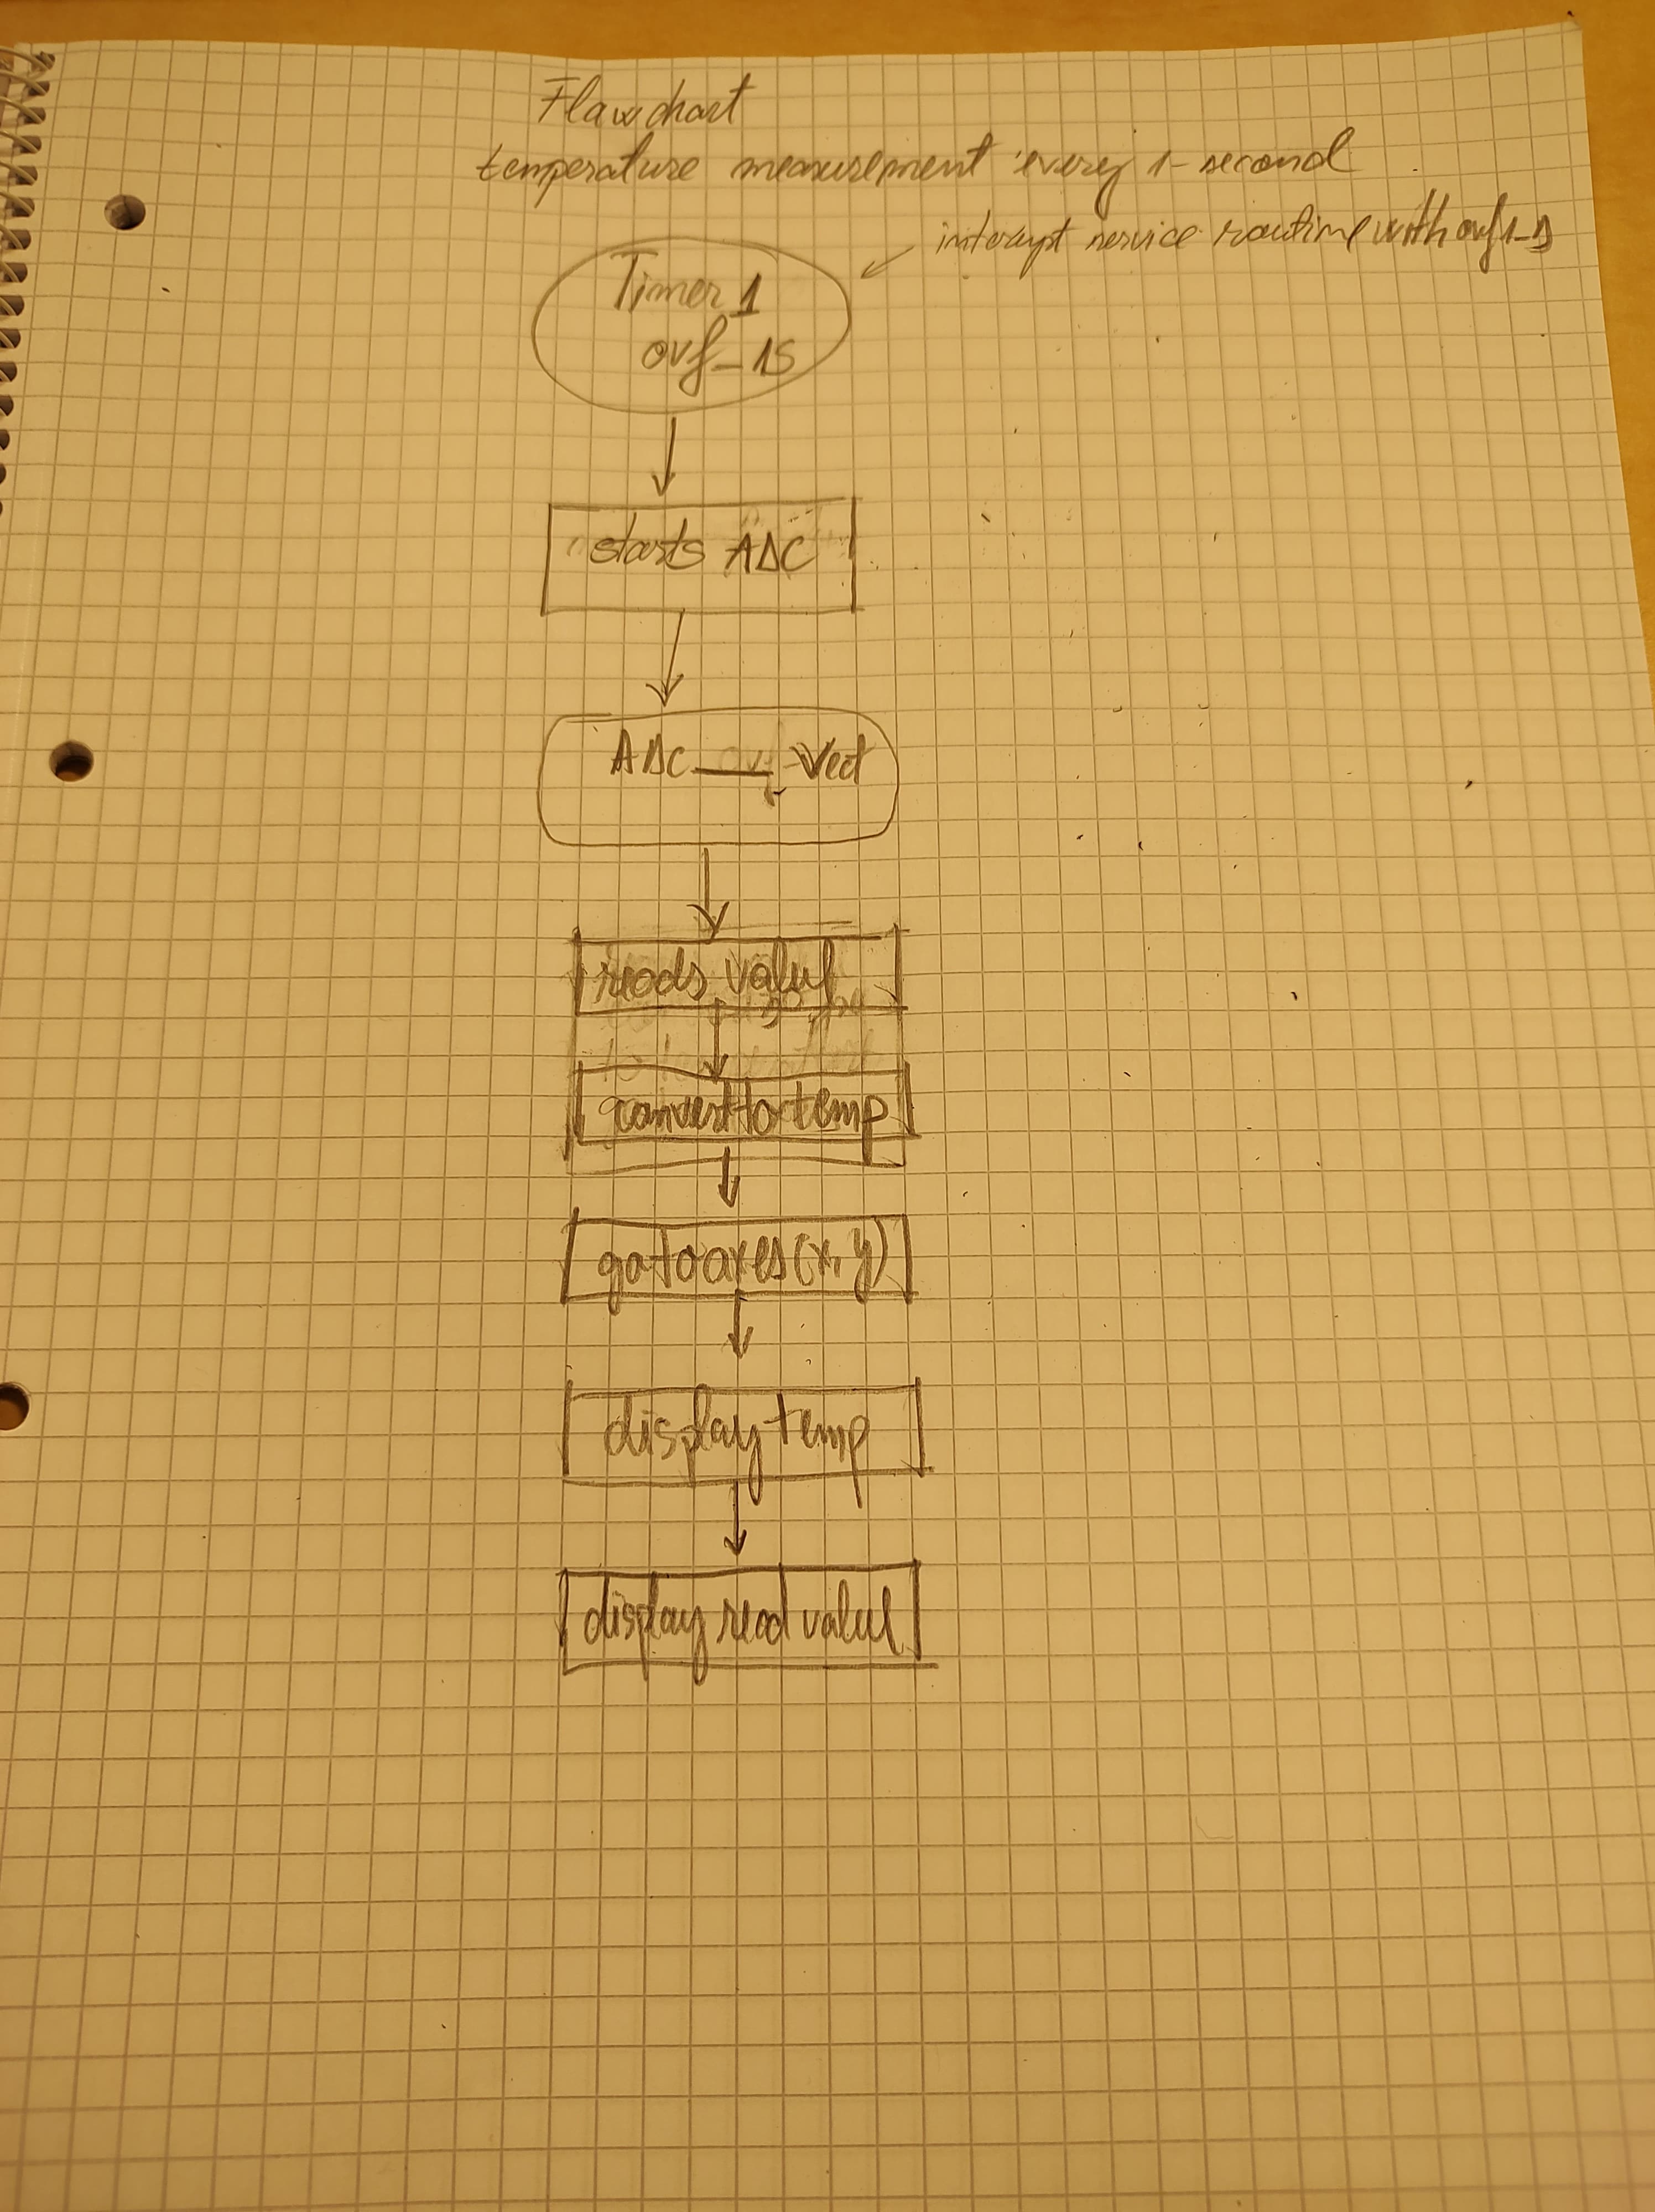 Flowchart
temperature measurement every 1-second
interupt service routine with ovf1_s
Timer 1
ovf_1s
starts ADC
ADC_Vect
reads value
convert to temp
goto axes (x, y)
display temp
display read value